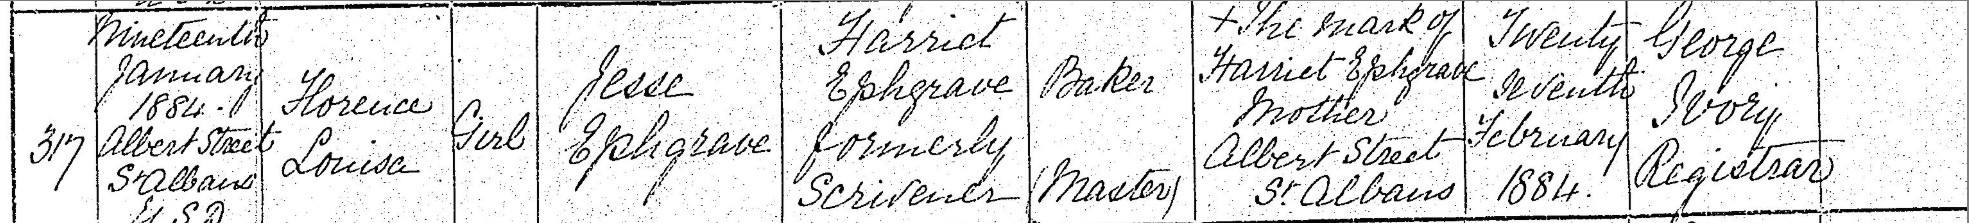 317
Nineteenth
January
1884.
Albert Street
St Albans
U.S.D.
Florence
Louisa
Girl
Jesse
Ephgrave
Harriet
Ephgrave
formerly
Scrivener
Baker
(Master)
+ The mark of
Harriet Ephgrave
Mother
Albert Street
St. Albans
Twenty
Seventh
February
1884.
George
Ivory
Registrar